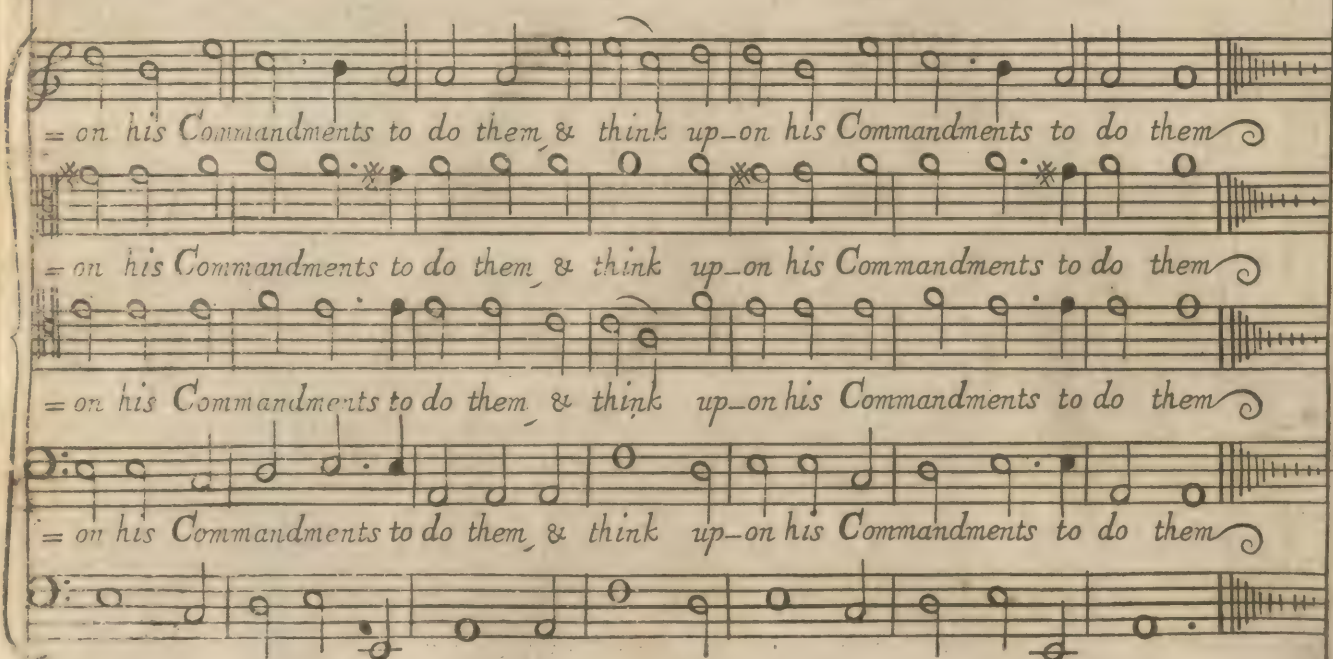 = on his Commandments to do them, & think up-on his Commandments to do them
= on his Commandments to do them, & think up-on his Commandments to do them
= on his Commandments to do them, & think up-on his Commandments to do them
= on his Commandments to do them, & think up-on his Commandments to do them